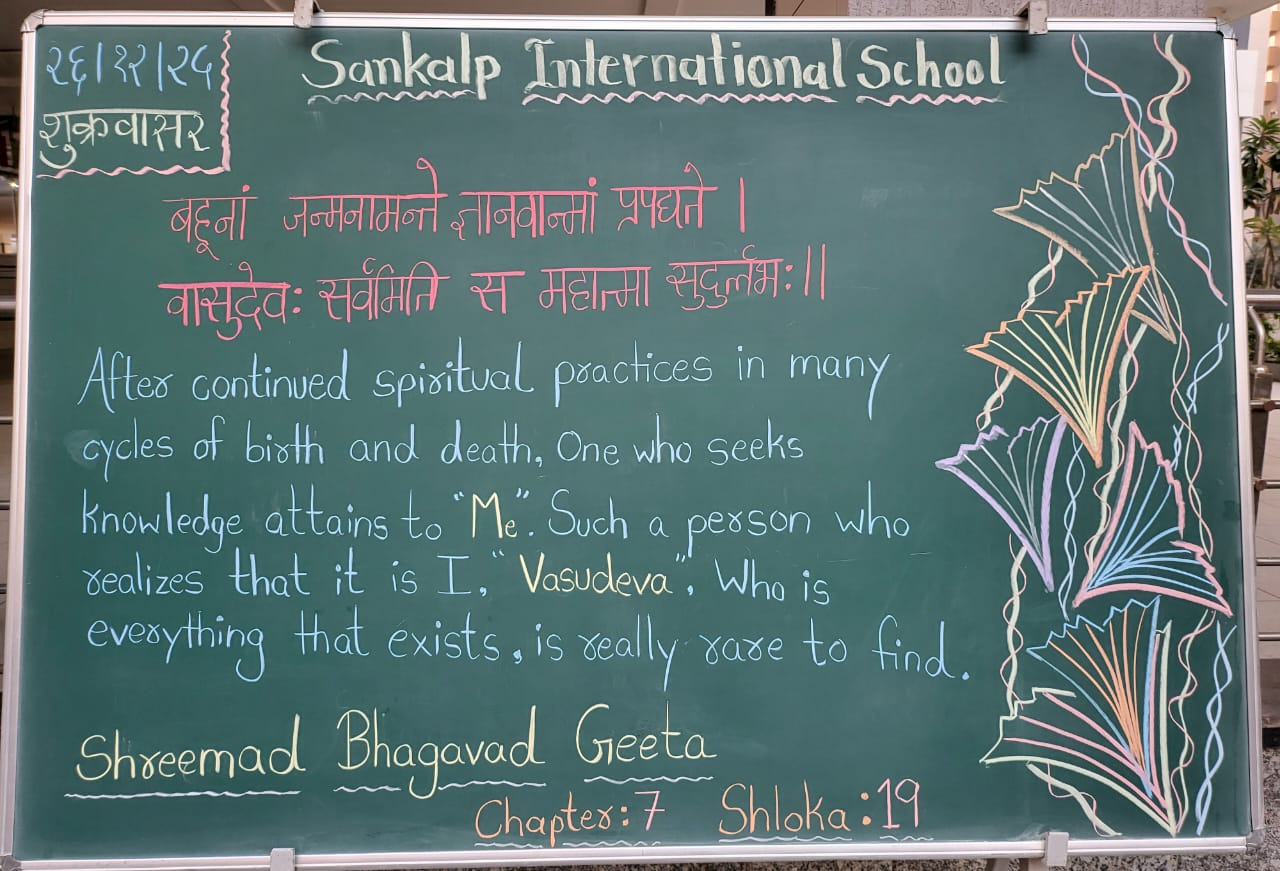 २६/१२/२५
शुक्रवासर
Sankalp International School
बहूनां जन्मनामन्ते ज्ञानवान्मां प्रपद्यते ।
वासुदेवः सर्वमिति स महात्मा सुदुर्लभः ॥
After continued spiritual practices in many
cycles of birth and death, One who seeks
knowledge attains to "Me". Such a person who
realizes that it is I, "Vasudeva", Who is
everything that exists, is really rare to find.
Shreemad Bhagavad Geeta
Chapter:7 Shloka:19